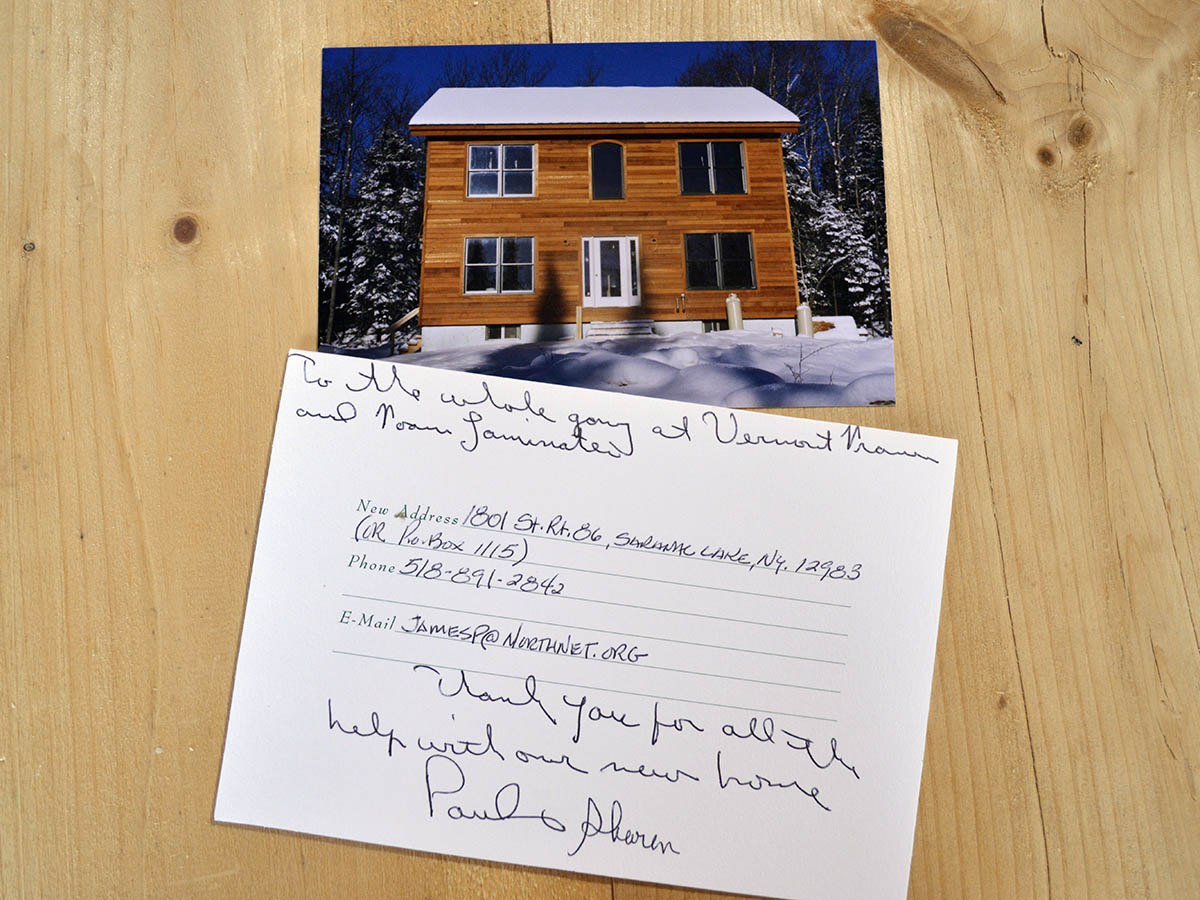 To the whole gang at Vermont Frames
and Foam Laminates
New Address 1801 St. Rt. 86, SARANAC LAKE, NY. 12983
(OR P.O. BOX 1115)
Phone 518-891-2842
E-Mail JAMESP@NORTHNET.ORG
Thank you for all the
help with our new home
Paul & Sharon